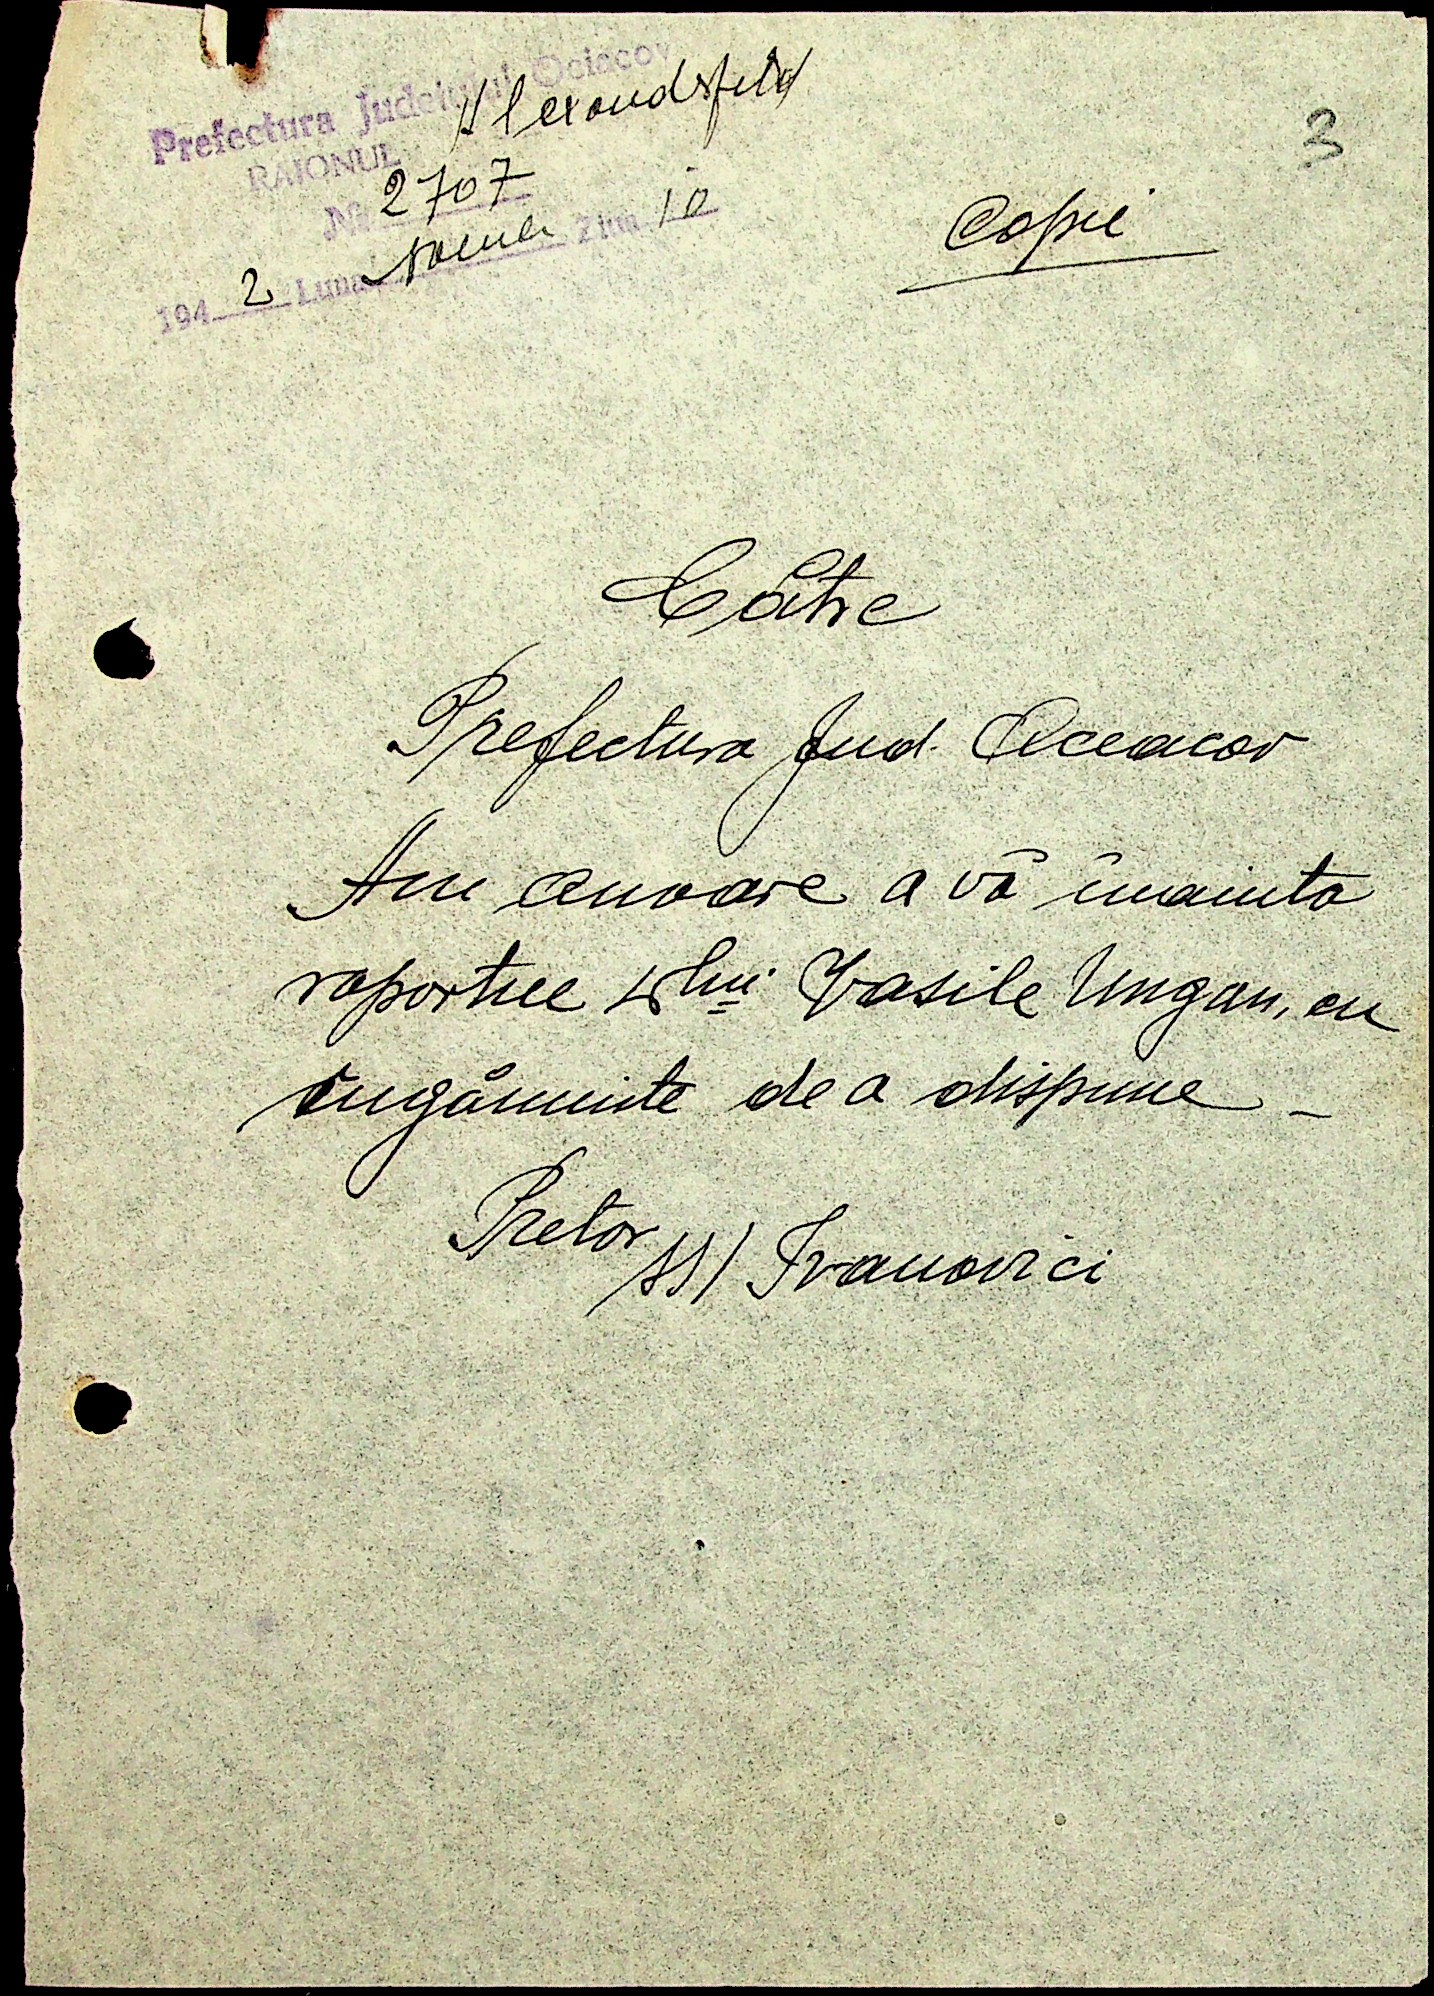 Prefectura Județului Ociacov
RAIONUL Alexandrfeld
Nr. 2707
194 2 Luna Noemb Ziua 10
3
Copie
Către
Prefectura Jud. Oceacov
Am onoare a vă înainta
raportul Dlui Vasile Ungan, cu
rugăminte de a dispune -
Pretor ss/ Ivanovici